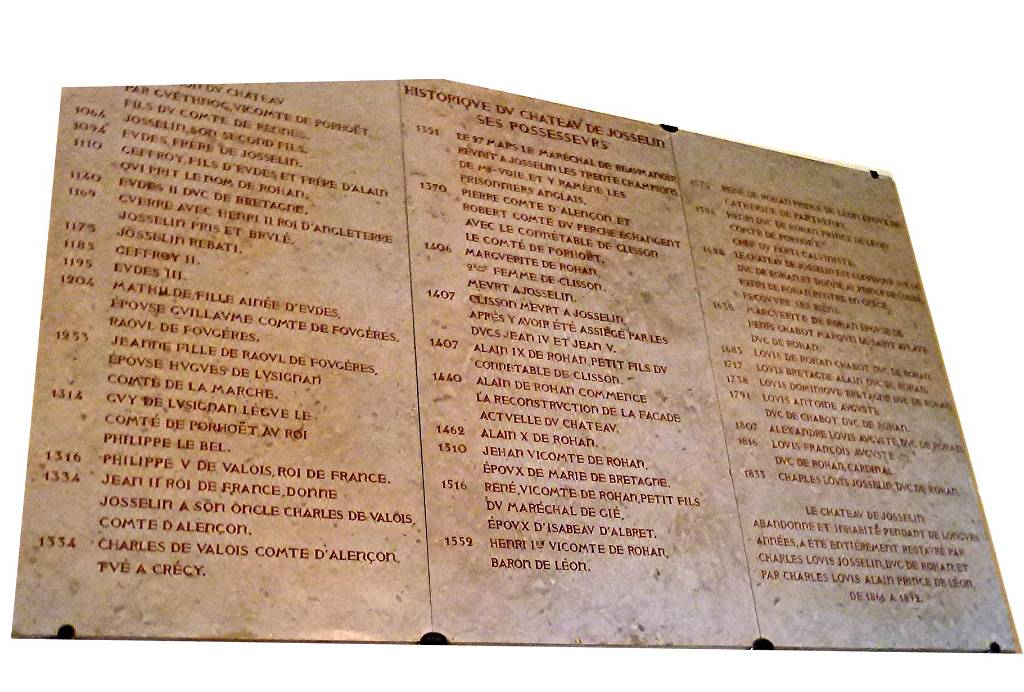 HISTORIQVE DV CHATEAV DE JOSSELIN
SES POSSESSEVRS
DV CHATEAV
PAR GVÉTHNOC, VICOMTE DE PORHOËT
FILS DV COMTE DE RENNES.
1064 JOSSELIN, SON SECOND FILS.
1094 EVDES, FRÈRE DE JOSSELIN.
1110 GEFFROY, FILS D'EVDES ET FRÈRE D'ALAIN
QVI PRIT LE NOM DE ROHAN.
1140 EVDES II DVC DE BRETAGNE.
1169 GVERRE AVEC HENRI II ROI D'ANGLETERRE
JOSSELIN PRIS ET BRVLÉ.
1173 JOSSELIN REBATI.
1185 GEFFROY II.
1195 EVDES III.
1204 MATHILDE, FILLE AINÉE D'EVDES,
ÉPOVSE GVILLAVME COMTE DE FOVGÈRES.
RAOVL DE FOVGÈRES.
1253 JEANNE FILLE DE RAOVL DE FOVGÈRES,
ÉPOVSE HVGVES DE LVSIGNAN
COMTE DE LA MARCHE.
1314 GVY DE LVSIGNAN LÈGVE LE
COMTÉ DE PORHOËT AV ROI
PHILIPPE LE BEL.
1316 PHILIPPE V DE VALOIS, ROI DE FRANCE.
1334 JEAN II ROI DE FRANCE, DONNE
JOSSELIN A SON ONCLE CHARLES DE VALOIS,
COMTE D'ALENÇON.
1334 CHARLES DE VALOIS COMTE D'ALENÇON,
TVÉ A CRÉCY.
1351 LE 27 MARS LE MARÉCHAL DE BEAVMANOIR
RÉVNIT A JOSSELIN LES TRENTE CHAMPIONS
DE MI-VOIE, ET Y RAMÈNE LES
PRISONNIERS ANGLAIS.
1370 PIERRE COMTE D'ALENÇON, ET
ROBERT COMTE DV PERCHE ÉCHANGENT
AVEC LE CONNÉTABLE DE CLISSON
LE COMTÉ DE PORHOËT.
1406 MARGVERITE DE ROHAN,
2ème FEMME DE CLISSON,
MEVRT A JOSSELIN.
1407 CLISSON MEVRT A JOSSELIN,
APRÈS Y AVOIR ÉTÉ ASSIÉGÉ PAR LES
DVCS JEAN IV ET JEAN V.
1407 ALAIN IX DE ROHAN, PETIT FILS DV
CONNÉTABLE DE CLISSON.
1440 ALAIN DE ROHAN COMMENCE
LA RECONSTRVCTION DE LA FACADE
ACTVELLE DV CHATEAV.
1462 ALAIN X DE ROHAN.
1510 JEHAN VICOMTE DE ROHAN,
ÉPOVX DE MARIE DE BRETAGNE.
1516 RENÉ, VICOMTE DE ROHAN, PETIT FILS
DV MARÉCHAL DE GIÉ,
ÉPOVX D'ISABEAV D'ALBRET.
1552 HENRI Ier VICOMTE DE ROHAN,
BARON DE LÉON.
RENÉ DE ROHAN PRINCE DE LÉON ÉPOVX DE
CATHERINE DE PARTHENAY.
HENRI DVC DE ROHAN PRINCE DE LÉON
COMTE DE PORHOËT
CHEF DV PARTI CALVINISTE.
LE CHATEAV DE JOSSELIN EST CONFISQVÉ
DVC DE ROHAN, ET DONNÉ AV PRINCE DE CONDÉ
HENRI DE ROHAN RENTRE EN GRACE,
RECOVVRE SES BIENS.
1638 MARGVERITE DE ROHAN ÉPOVSE DE
HENRI CHABOT MARQVIS DE SAINT AVLAYE
DVC DE ROHAN.
1685 LOVIS DE ROHAN CHABOT, DVC DE ROHAN.
1717 LOVIS BRETAGNE ALAIN DVC DE ROHAN.
1738 LOVIS DOMINIQVE BRETAGNE DVC DE ROHAN
1791 LOVIS ANTOINE AVGVSTE
DVC DE CHABOT, DVC DE ROHAN.
1807 ALEXANDRE LOVIS AVGVSTE, DVC DE ROHAN
1816 LOVIS FRANÇOIS AVGVSTE
DVC DE ROHAN, CARDINAL.
1833 CHARLES LOVIS JOSSELIN, DVC DE ROHAN.
LE CHATEAV DE JOSSELIN
ABANDONNÉ ET INHABITÉ PENDANT DE LONGVES
ANNÉES, A ÉTÉ ENTIÈREMENT RESTAVRÉ PAR
CHARLES LOVIS JOSSELIN, DVC DE ROHAN, ET
PAR CHARLES LOVIS ALAIN PRINCE DE LÉON,
DE 1866 A 1892.